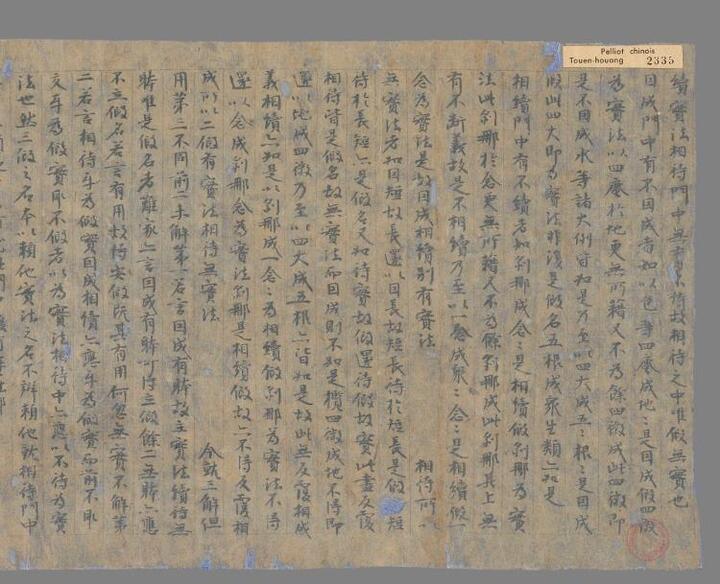 Pelliot chinois
Touen-houang 2335
續實法相待門中無有不待故相待之中唯假無實也
因成門中有不因成者如以色等四塵成地地是因成假四微
為實法以四塵於地更無所藉又不為餘四微成此四微即
是不因成水等諸大例皆如是乃至以四大成五根根是因成
假此四大即為實法非復是假名五根成眾生類如是
相續門中有不續者如剎那成念念是相續假剎那為實
法此剎那於念更無所藉又不為餘剎那成此剎那其上無
有不斷義故是不相續乃至以一念成眾念念是相續假一
念為實法是故因成相續別有實法 相待所以
無實法者如因短故長還以因長故短長待於短長是假短
待於長短是假名又如待實故假還待假故實此盡反覆
相待皆是假名故無實法而因成則不如是攬四微成地不得即
還以地成四微乃至以四大成五根皆如是故此無反覆相成
義相續如是以剎那成一念念為相續假剎那為實法不得
還以念成剎那念為實法剎那是相續假故不得反覆相
成所以二假有實法相待無實法 今就三解但
用第三不同前二未解第一若言因成有時設立實法續待無
時唯是假名者難家言因成有時可得立假餘二無時應
不立假名若言有用故持安假既其有用何忽無實不解第
二若言相待平為假實因成相續應平為假實而前不即
文平為假實即不假者以為實法相待中應以不待為實
法世然三假之名本以賴他實法之名不辨賴他就相待門中